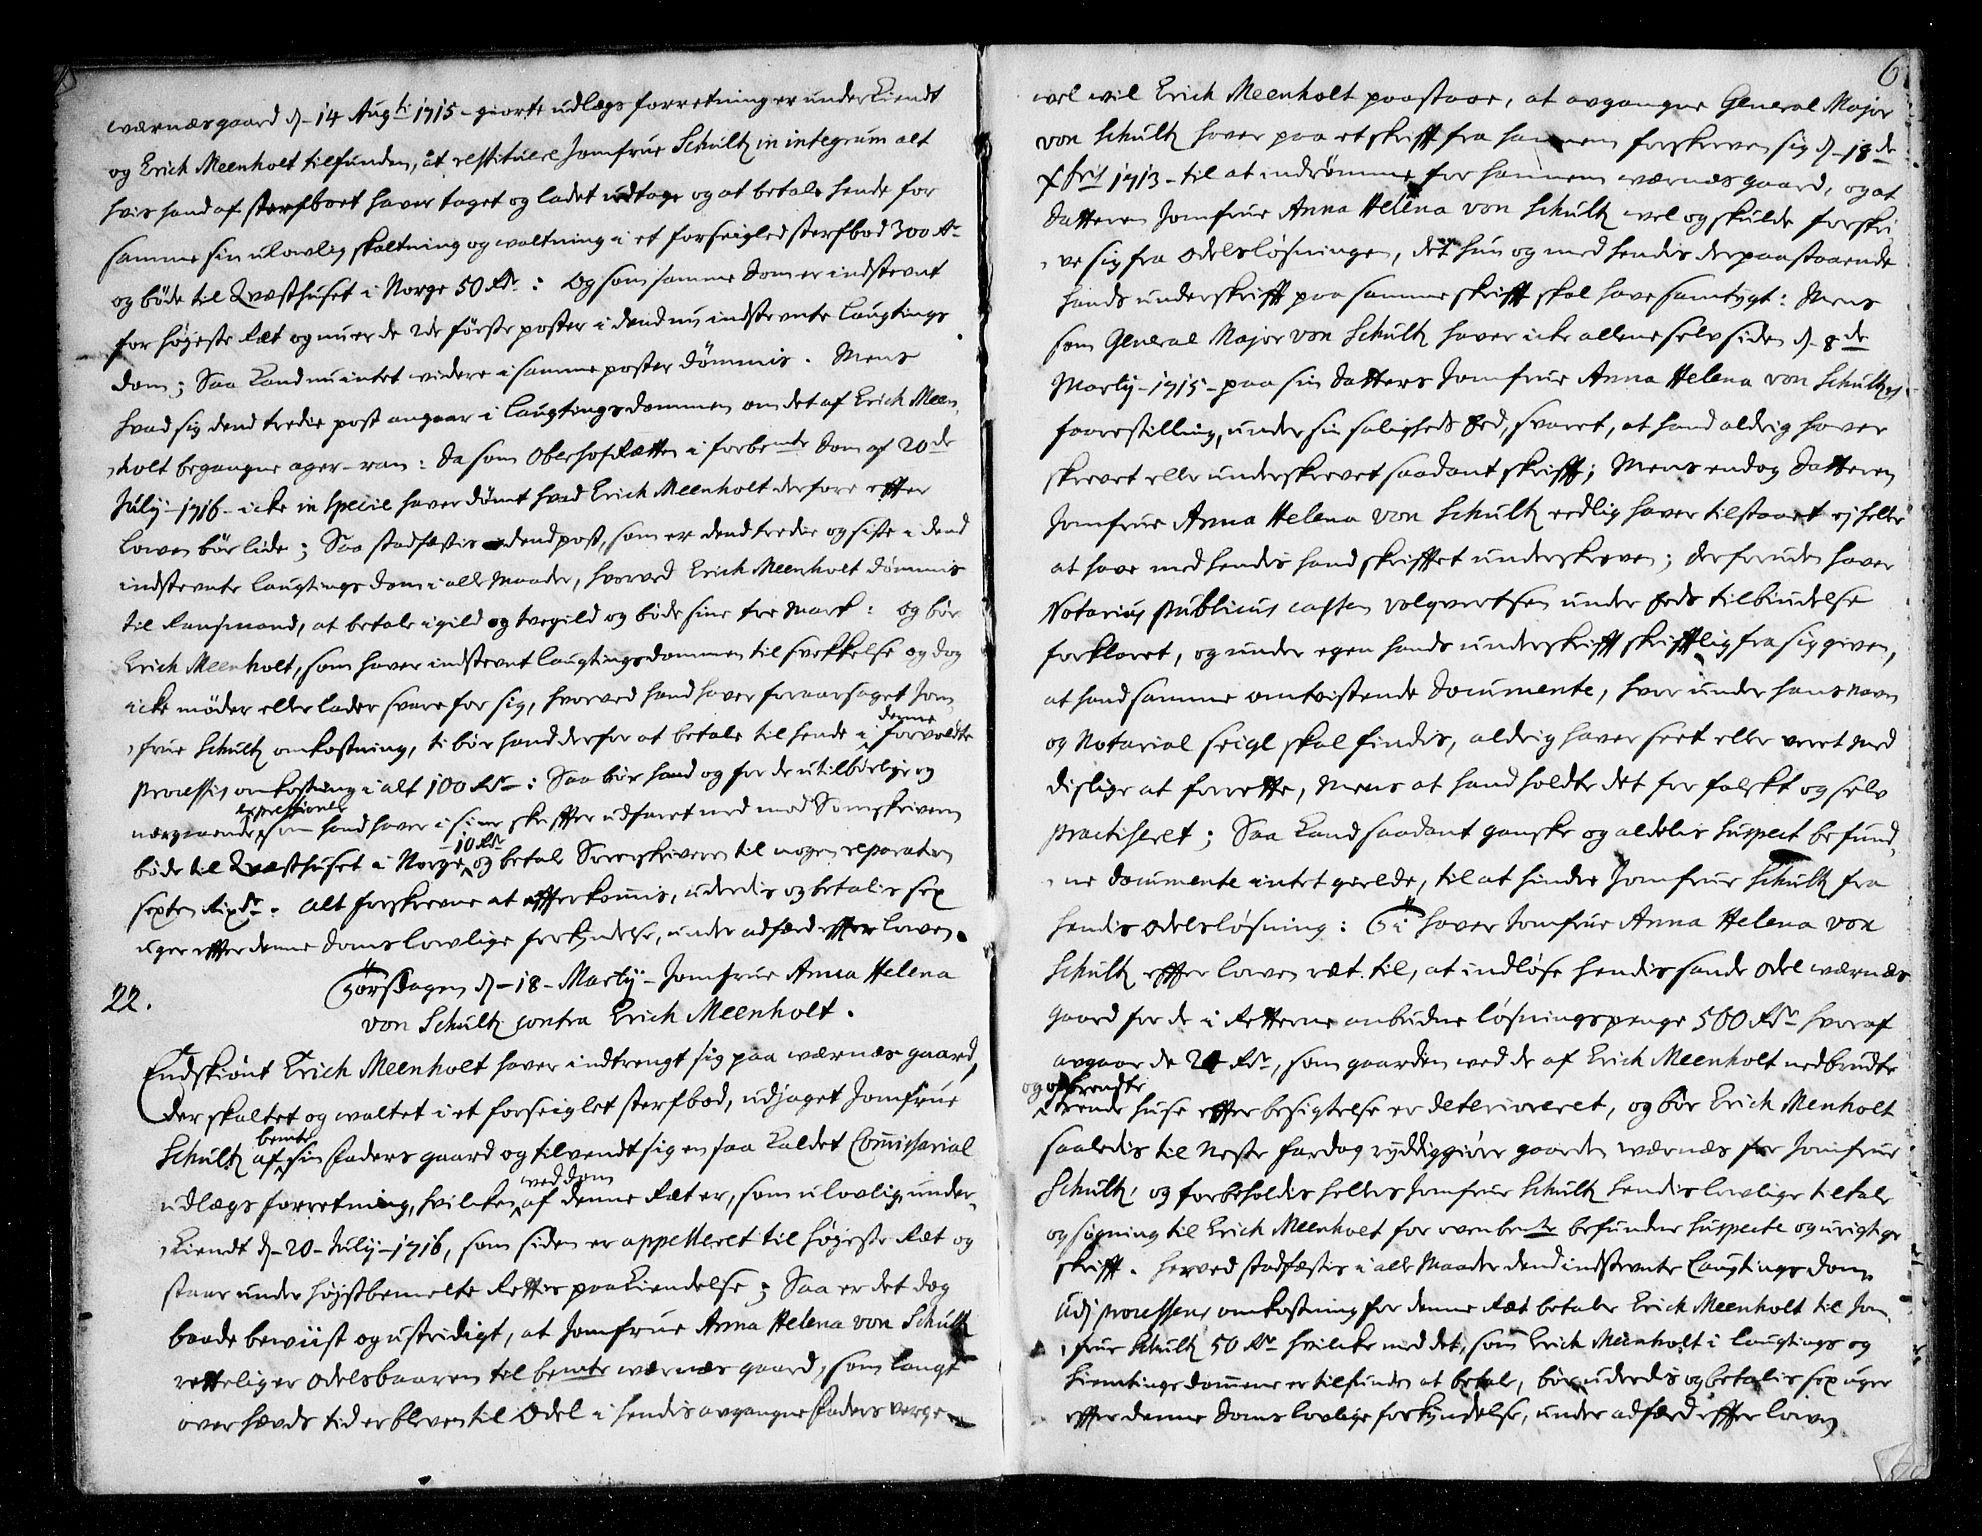 wærnæsgaard d. 14 Aug.ti 1715 giorte udlægsforretning er underkiendt
og Erich Meenholt tilfunden, at restituere Jomfrue Schultz in integrum alt
hvis hand af sterfboet haver taget og ladet udtage og at betale hende for
samme sin ulovlig skaltning og waltning i et forseigled sterfbod 300 Rdr
og bøde til Qvæsthuset i Norge 50 Rdr: Og som samme Dom er indstevnt
for højeste Ræt og nu er de 2de förste poster i dend nu indstevnte Laugtings
Dom; Saa Kand nu intet videre i samme poster dömmis. Mens
hvad sig dend tredie post angaar i Laugtingsdommen om det af Erich Meen,
,holt begangne ager-ran: Da som OberhofRætten i forbemte Dom af 20de
July 1716 icke in specie haver dömt hvad Erich Meenholt derfore effter
Lowen bör lide; Saa stadfæstis dend post, som er dend tredie og siste i dend
indstevnte Laugtings Dom i alle Maader, hvorved Erich Meenholt dömmis
til Ransmand, at betale igild og tvegild og bøde sine tre Mark: og bör
Erich Meenholt, som haver indstevnt Laugtingsdommen til svekkelse og dog
icke möder eller lader svare for sig, hvorved hand haver foraarsaget Jom
,frue Schultz omkostning, ti bör hand derfor at betale til hende i denne forvoldte
Processis omkostning i alt 100 Rdr: Saa bör hand og for de utilbörlige og
nærgaaende expressioner som hand haver i sine skriffter udfaret med mod Sorenskriveren
bøde til Qvæsthuset i Norge 10 Rdr og betale Sorenskriveren til nogen reparation
sexten Rixdr. Alt forskrevne at effterkommis, uderdis og betalis sex
uger effter denne Doms lowlige forkyndelse, under adfærd effter lowen.
22. Torsdagen d. 18 Marty Jomfrue Anna Helena
von Schultz contra Erich Meenholt.
Endskiönt Erich Meenholt haver indtrengt sig paa wærnæs gaard,
der skaltet og waltet i et forseiglet sterfbod, udjaget Jomfrue
Schultz af bemte sin Faders gaard og tilvendt sig en saa Kaldet Commissarial
udlægs forretning, hvilken ved dom af denne Ræt er, som ulovlig under,
,kiendt d. 20 July 1716, som siden er appelleret til højeste Ræt og
staar under højstbemelte Rettis paaKiendelse; Saa er det dog
baade beviist og ustridigt, at Jomfrue Anna Helena von Schultz
rettelig er Odelsbaaren til bemte wærnæs gaard, som langt
over hævds tid er bleven til Odel i hendis avgangne Faders verge
6
vel vil Erich Meenholt paastaae, at avgangne General Major
von Schultz haver paa et skrifft fra hannem forskreven sig d. 18de
Xbris 1713 til at indrömme for hannem wærnæs gaard, og at
Datteren Jomfrue Anna Helena von Schultz vel og skulde forskri
,ve sig fra Odelslösningen, det hun og med hendis derpaastaaende
hands underskrifft paa samme skrifft skal have samtygt: Mens
som General Major von Schultz haver icke allene selv siden d. 8de
Marty 1715 paa sin Datters Jomfrue Anna Helena von Schultzes
foorestilling, under sin saligheds Eed, svaret, at hand aldrig haver
skrevet eller underskrevet saadant skrifft; Mens endog Datteren
Jomfrue Anna Helena von Schultz eedlig haver tilstaaet ej heller
at have med hendis hand skrifftet underskreven; derforuden haver
Notarius Publicus Casten volqvertsen under Eeds tilbiudelse
forklaret, og under egen hands underskrifft skrifftlig fra sig given,
at hand samme omtvistende Documente, hvor under hans Navn
og Notarial seigl skal findis, aldrig haver seet eller veret med
dislige at forrette, Mens at hand holdte det for falskt og selv
practiseret; Saa Kand saadant ganske og aldelis suspect befund,
,ne Documente intet gielde, til at hindre Jomfrue Schultz fra
hendis Odelslösning: Ti haver Jomfrue Anna Helena von
Schultz effter lowen ræt til, at indlöse hendis sande Odel wærnæs
gaard for de i Retterne anbudne lösningspenge 500 Rdr hvoraf
avgaar de 24 Rdr, som gaarden ved de af Erich Meenholt nedbrudte
og opbrendte
trende huse effter besigtelse er deterioreret, og bör Erich Menholt
saaledis til Neste fardag ryddiggiöre gaarden wærnæs for Jomfrue
Schultz, og forbeholdis hellers Jomfrue Schultz hendis lovlige tiltale
og sögning til Erich Meenholt for ovenbemte befundne suspecte og urigtige
skrifft. herved stadfæstis i alle Maader dend indstevnte Laugtings dom.
Udj processens omkostning for denne Ræt betaler Erich Meenholt til Jom
,frue Schultz 50 Rdr hvilcke med det, som Erich Meenholt i Laugtings og
Hiemtings dommene er tilfunden at betale, bör uderdis og betalis sex uger
effter denne Doms lovlige forkyndelse, under adfærd effter lowen